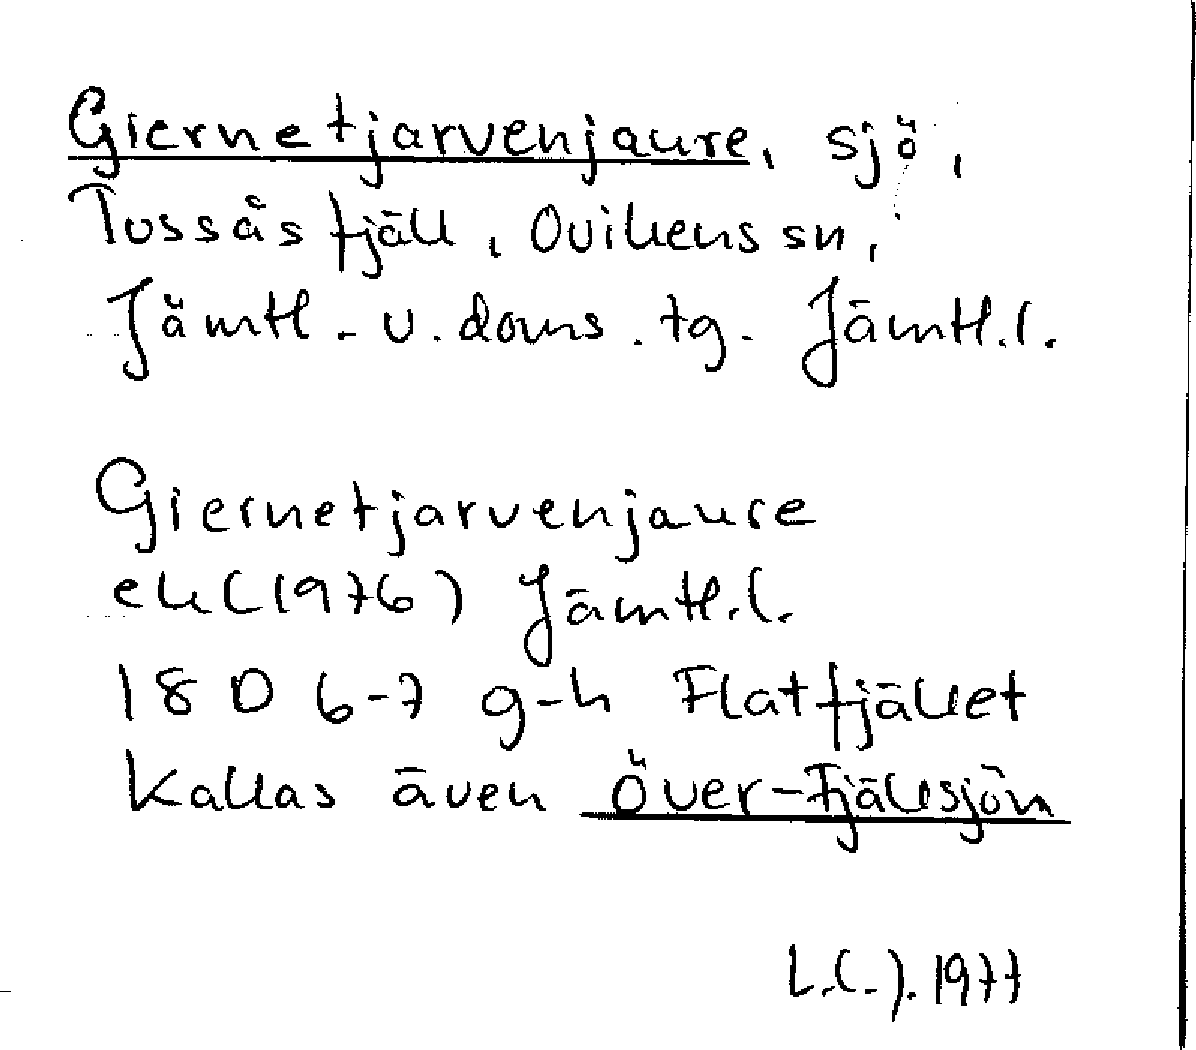 Giernetjarvenjaure, sjö,
Tossåsfjäll, Ovikens sn,
Jämtl. v. doms. tg. Jämtl.l.
Giernetjarvenjaure
ek (1976) Jämtl.l.
18 D 6-7 g-h Flatfjället
Kallas även Över-Fjällsjön
L.C.J. 1977